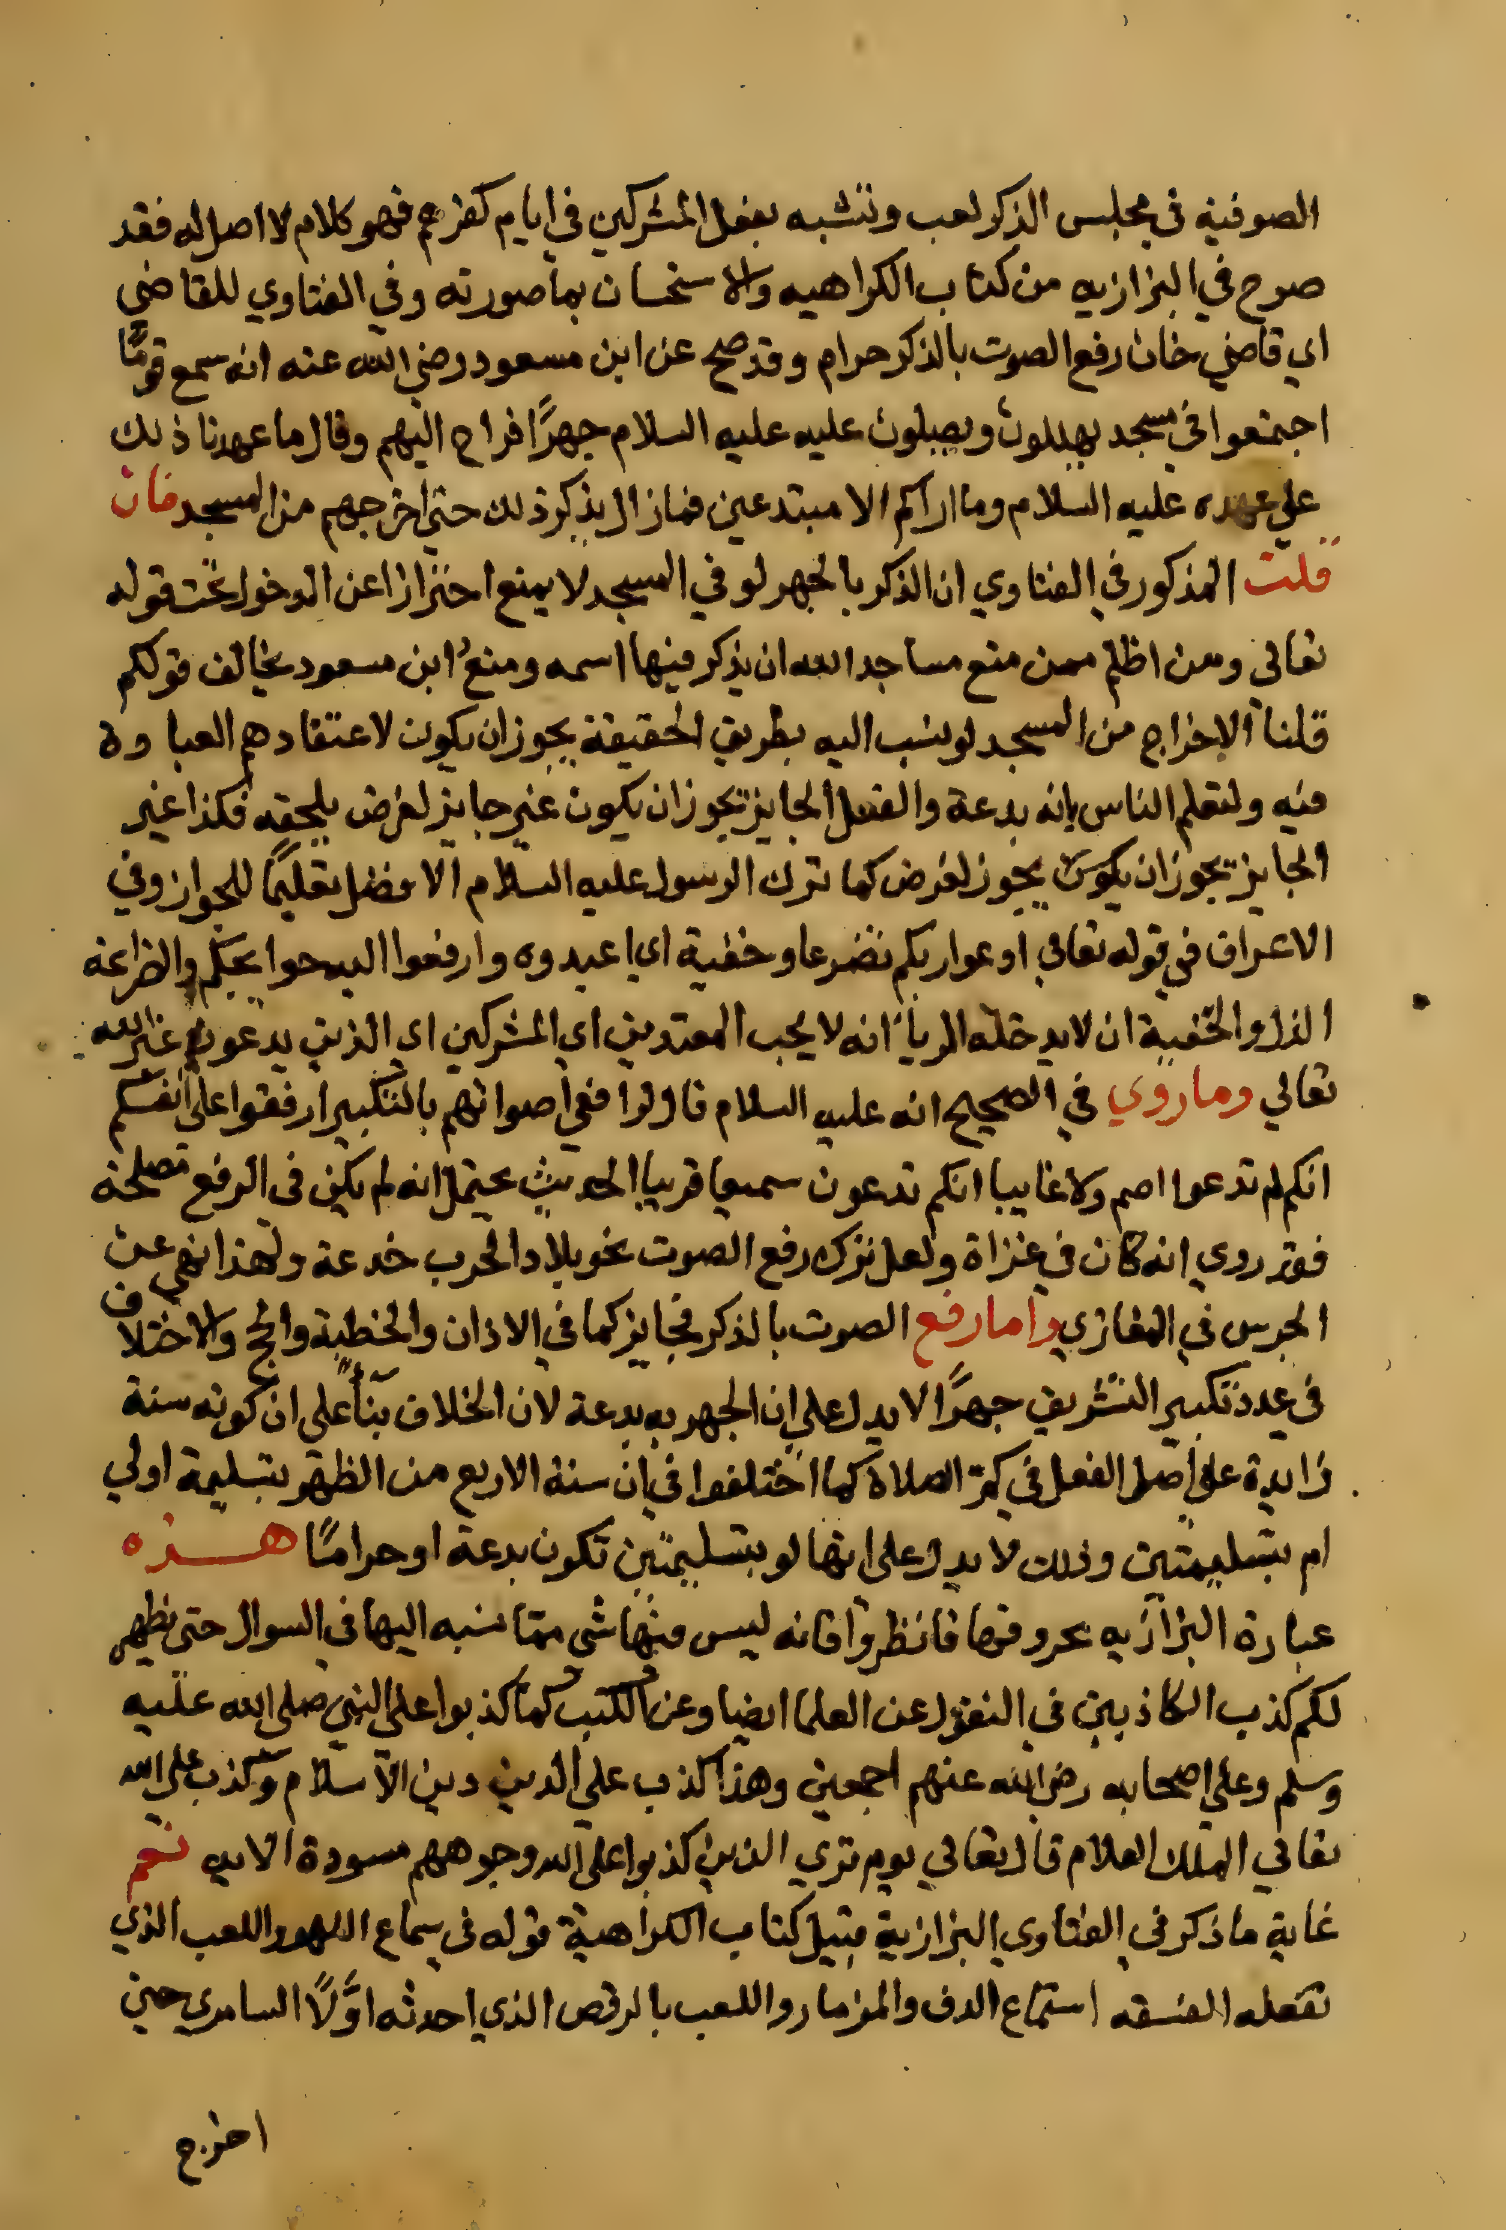 الصوفيه في مجلس الذكر لعب وتشبه بفعل المشركين في ايام كفرهم فهو كلام لا اصل له فقد
صرح في البزازيه من كتاب الكراهيه والاستحسان بما صورته وفي الفتاوي للقاضي
اي قاضي خان رفع الصوت بالذكر حرام وقد صح عن ابن مسعود رضي الله عنه انه سمع قومًا
اجتمعوا في مسجد يهللون ويصلون عليه عليه السلام جهرًا فراح اليهم وقال ما عهدنا ذلك
علي عهده عليه السلام وما اراكم الا مبتدعين فمازال يذكر ذلك حتي اخرجهم من المسجد فان
قلت المذكور في الفتاوي ان الذكر بالجهر لو في المسجد لا يمنع احترازا عن الدخول تحت قوله
تعالي ومن اظلم ممن منع مساجد الله ان يذكر فيها اسمه ومنعُ ابن مسعود يخالف قولكم
قلنا الاخراج من المسجد لو نسب اليه بطريق الحقيقة يجوز ان يكون لاعتقادهم العبادة
فيه ولتعلم الناس بانه بدعة والفعل الجايز يجوز ان يكون غير جايز لغرض يلحقه فكذا غير
الجايز يجوز ان يكون يجوز لغرض كما ترك الرسول عليه السلام الافضل تعليمًا للجواز وفي
الاعراف في قوله تعالي ادعوا ربكم تضرعا وخفية اي اعبدوه وارفعوا اليه حوايجكم والضراعة
الذل والخفية ان لا يدخله الريا انه لا يحب المعتدين اي المشركين اي الذين يدعون غير الله
تعالي وما روي في الصحيح انه عليه السلام قال لرافعي اصواتهم بالتكبير ارفقوا علي انفسكم
انكم لم تدعوا اصم ولا غايبا انكم تدعون سميعا قريبا الحديث يحتمل انه لم يكن في الرفع مصلحة
فقد روي انه كان في غزاة ولعل ترك رفع الصوت نحو بلاد الحرب خدعة ولهذا نهي عن
الجرس في المغازي واما رفع الصوت بالذكر فجايز كما في الاذان والخطبة والحج والاختلاف
في عدد تكبير التشريق جهرًا لا يدل علي ان الجهر به بدعة لان الخلاف بنأً علي ان كونه سنة
زايدة علي اصل الفعل في كم الصلاة كما اختلفوا في ان سنة الاربع من الظهر بتسليمة اولي
ام بتسليمتين وذلك لا يدل علي انها لو بتسليمتين تكون بدعة او حرامًا هذه
عبارة البزازيه بحروفها فانظروا فانه ليس فيها شي مما نسبه اليها في السوال حتي يظهر
لكم كذب الكاذبين في النقول عن العلما ايضا وعن الكتب كما كذبوا علي النبي صلي الله عليه
وسلم وعلي اصحابه رضي الله عنهم اجمعين وهذا كذب علي الدين دين الاسلام وكذب علي الله
تعالي الملك العلام قال تعالي يوم تري الذين كذبوا علي الله وجوههم مسودة الايه نعم
غاية ما ذكر في الفتاوي البزازية قبيل كتاب الكراهية قوله في سماع اللهو واللعب الذي
تفعله الفسقه استماع الدف والمزمار واللعب بالرقص الذي احدثه اوّلًا السامري حين
اخرج